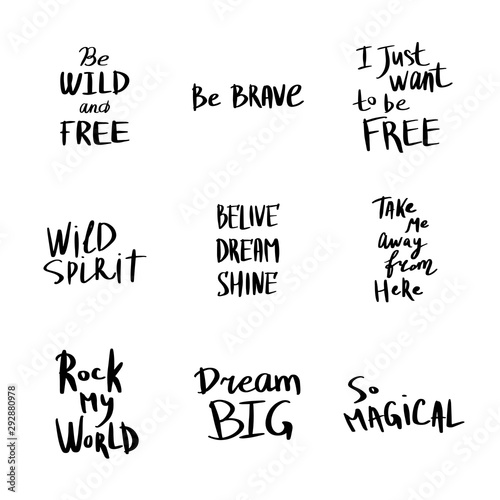 Be
WILD
and
FREE
Be BRAVE
I Just
want
to be
FREE
WilD
SPiRiT
BELIVE
DREAM
SHINE
TAKe
Me
away
from
HeRe
Rock
MY
WORLD
Dream
BIG
So
MAGICAL
Adobe Stock | #292880978